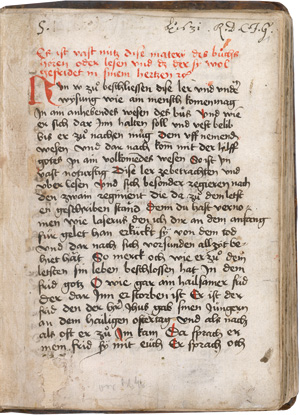 S.
Es ist vast nutz dise materi des buchs
horen oder lesen und der
in sinem hertzen
Nun zu beschliessen dise ler und under
wysung wie ain mensch komen mag
In am anhebendt wesen des und wie
er sich dar Inn halten soll und vest belib
bis er zu nachung mug dem uff nemend
wesen und dar nach kom mit der hilff
gotes In am volkomes wesen So ist In
vast notturftig Dise ler zebetrachten und
uber lesen und sich besonder regieren nach
den zwain regiment die da zu dem lesten
geschriben stand Denn du hast
wie lasarus den ich dir an dem anfang
fur gelet han erkuckt von dem tod
und dar nach sich vor sunden all zyt be
hiet hat So merck och wie er zu dem
lesten sin leben beschlossen hat In dem
frid gotz O wie gar am hailsamer frid
Der dar Inn erstorben ist Er ist der
frid den der her Jhus gab sinen Jungern
an dem hailigen ostertag Und als nach
als oft er zu In kam Er sprach
frid sy mit euch Er sprach och